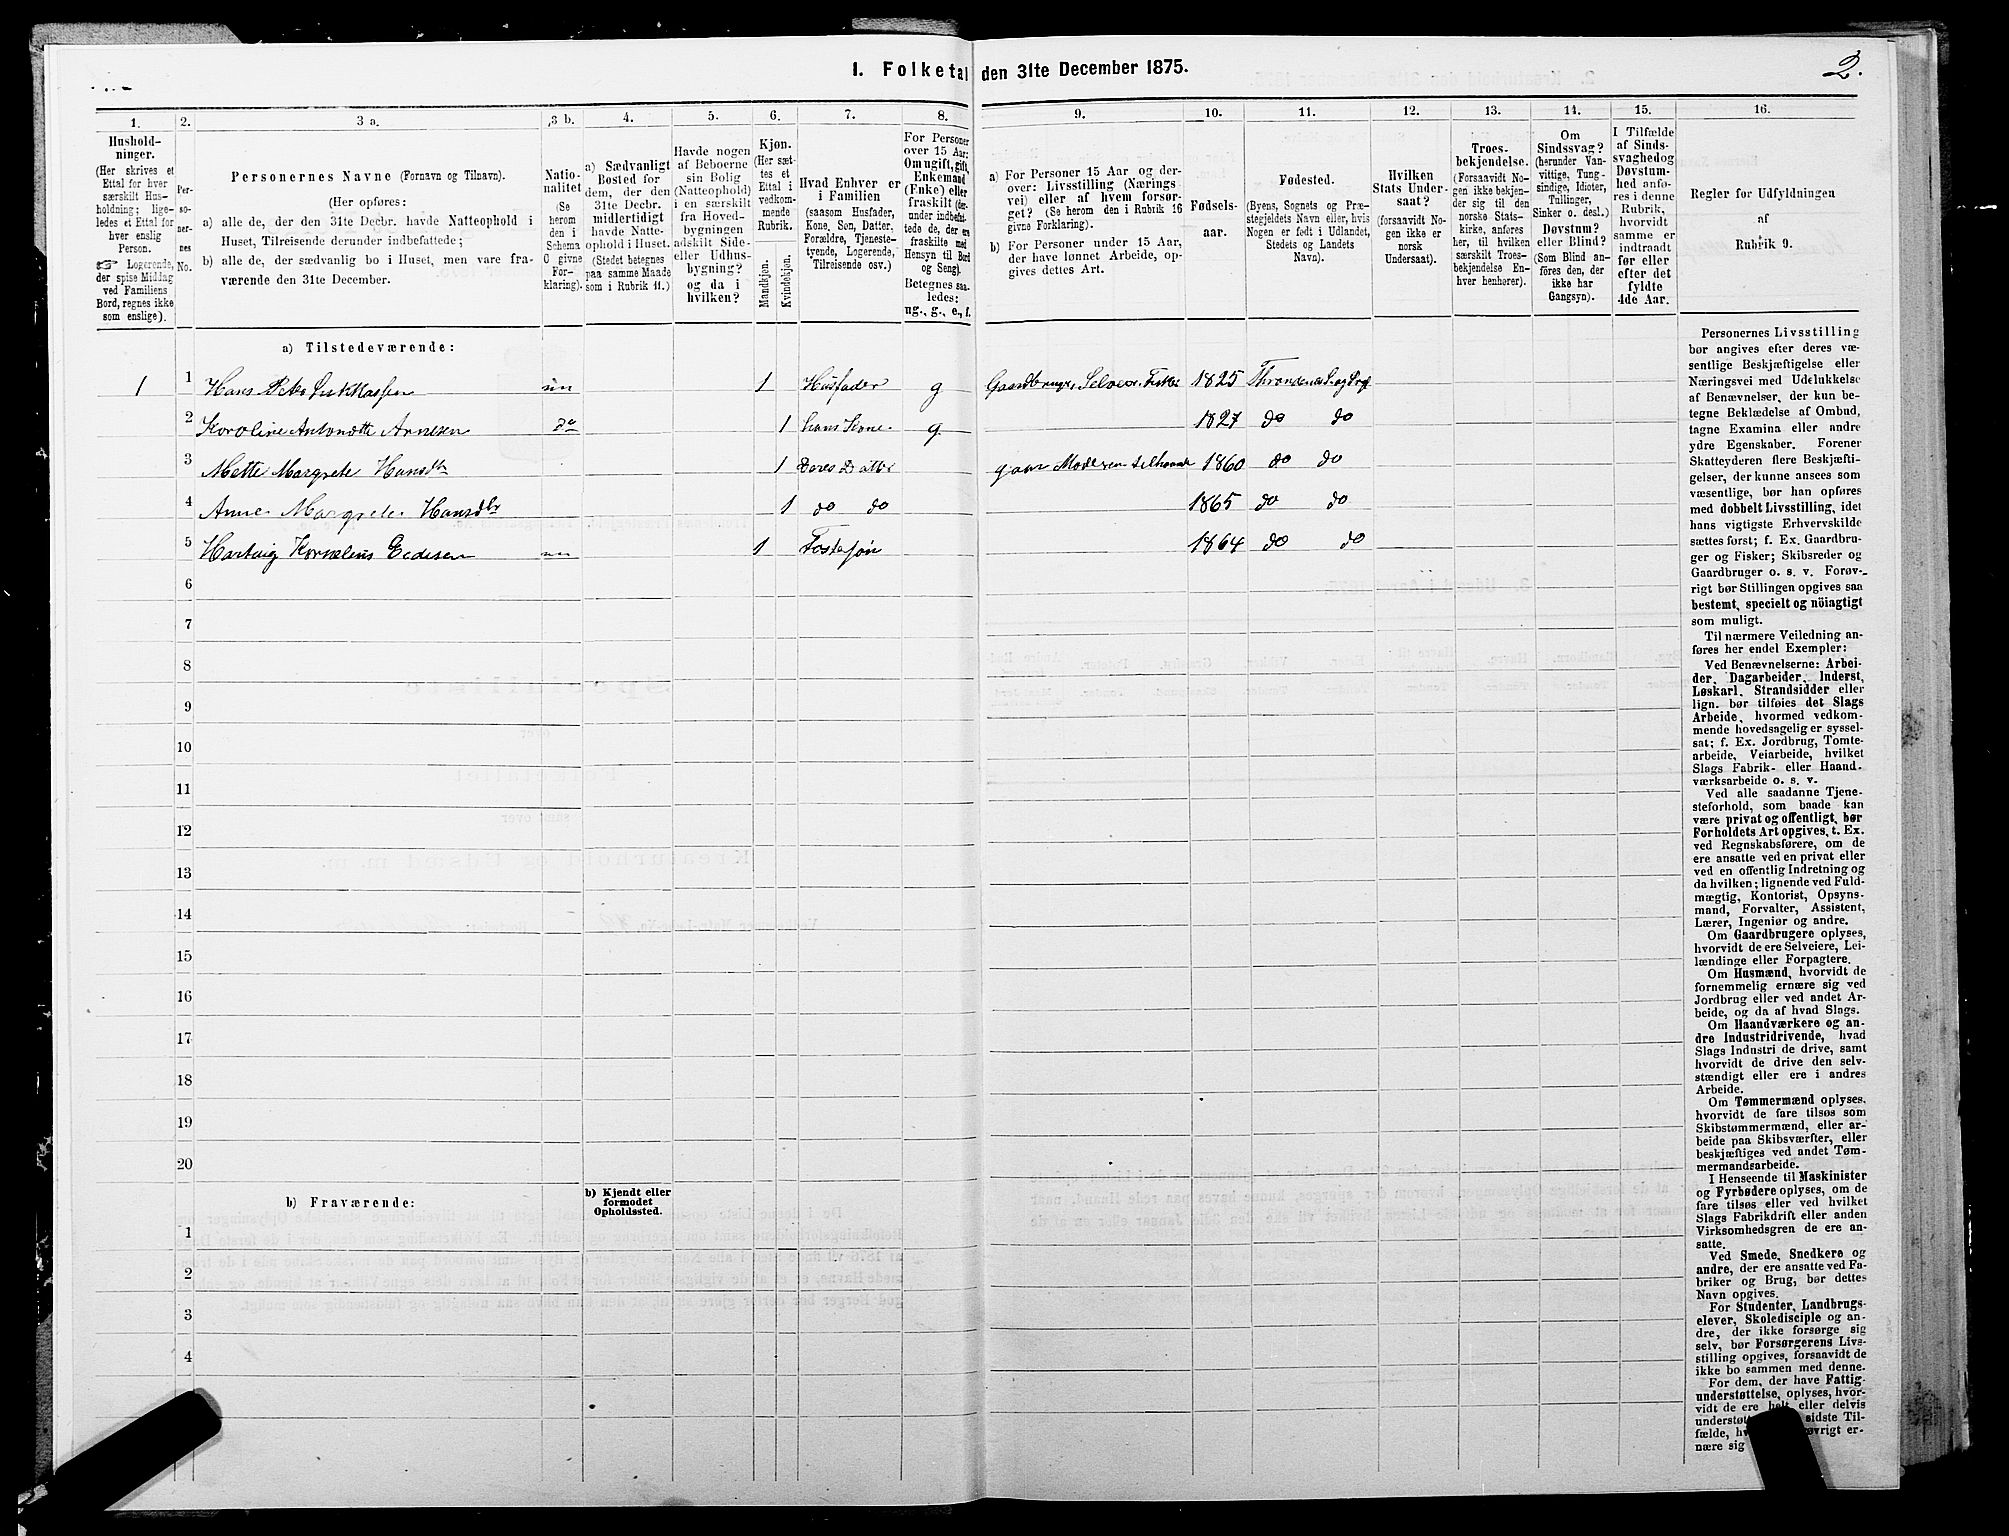 1. Folketal den 31te December 1875.
2.
1.
Hushold-
ninger.
(Her skrives et
Ettal for hver
særskilt Hus-
holdning; lige-
ledes et Ettal for
hver enslig
Person.
Logerende,
der spise Middag
ved Familiens
Bord, regnes ikke
som enslige).
2.
Per-
so-
ner-
nes
No.
3 a.
Personernes Navne (Fornavn og Tilnavn).
(Her opføres:
a) alle de, der den 31te Decbr. havde Natteophold i
Huset, Tilreisende derunder indbefattede;
b) alle de, der sædvanlig bo i Huset, men vare fra-
værende den 31te December.
3 b.
Natio-
nalitet
(Se
herom
den i
Schema
C givne
For-
klaring).
4.
a) Sædvanligt
Bosted for
dem, der den
31te Decbr.
midlertidigt
havde Natte-
ophold i Huset.
(Stedet betegnes
paa samme Maade
som i Rubrik 11.)
5.
Havde nogen
af Beboerne
sin Bolig
(Natteophold)
i en særskilt
fra Hoved-
bygningen
adskilt Side-
eller Udhus-
bygning?
og da i
hvilken?
6.
Kjøn.
(Her sæt-
tes et
Ettal i
vedkom-
mende
Rubrik.
Mandkjøn.
Kvindekjøn.
7.
Hvad Enhver er
i Familien
(saasom Husfader,
Kone, Søn, Datter,
Forældre, Tjeneste-
tyende, Logerende,
Tilreisende osv.)
8.
For Personer
over 15 Aar:
Om ugift, gift,
Enkemand
(Enke) eller
fraskilt (der-
under indbefat-
tede de, der ere
fraskilte med
Hensyn til Bord
og Seng).
Betegnes saa-
ledes:
ug., g., e., f.
9.
a) For Personer 15 Aar og der-
over: Livsstilling (Nærings-
vei) eller af hvem forsør-
get? (Se herom den i Rubrik 16
givne Forklaring).
b) For Personer under 15 Aar,
der have lønnet Arbeide, op-
gives dettes Art.
10.
Fødsels-
aar.
11.
Fødested.
(Byens, Sognets og Præ-
stegjeldets Navn eller, hvis
Nogen er født i Udlandet,
Stedets og Landets
Navn).
12.
Hvilken
Stats Under-
saat?
(forsaavidt No-
gen ikke er
norsk
Undersaat).
13.
Troes-
bekjendelse.
(Forsaavidt No-
gen ikke bekjen-
der sig til den
norske Stats-
kirke, anføres
her, til hvilken
særskilt Troes-
bekjendelse En-
hver henhører).
14.
Om
Sindssvag?
(herunder Van-
vittige, Tung-
sindige, Idioter,
Tullinger,
Sinker o. desl.)
Døvstum?
eller Blind?
(Som Blind an-
føres den, der
ikke har
Gangsyn).
15.
I Tilfælde
af Sinds-
svaghedog
Døvstum-
hed anfø-
res i denne
Rubrik,
hvorvidt
samme er
indtraadt
før eller
efter det
fyldte
4de Aar.
16.
Regler for Udfyldningen
af
Rubrik 9.
a) Tilstedeværende:
1 1 Hans Peter un 1 Husfader g Gaardbruger, Selveier, Fisker 1825 Throndenæs S. og Prgj
2 Karoline Antonette Arnesen do 1 hans Kone g 1827 do do
3 Mette Margrete Hansdtr 1 Deres Datter gaar Moderen tilhaande 1860 do do
4 Anne Margrete Hansdtr 1 do do 1865 do do
5 Hartvig Kornelius Edisen un 1 Fostersøn 1864 do do
6
7
8
9
10
11
12
13
14
15
16
17
18
19
20
b) Fraværende:
b) Kjendt eller
formodet
Opholdssted.
1
2
3
4
Personernes Livsstilling
bør angives efter deres væ-
sentlige Beskjæftigelse eller
Næringsvei med Udelukkelse
af Benævnelser, der kun be-
tegne Beklædelse af Ombud,
tagne Examina eller andre
ydre Egenskaber. Forener
Skatteyderen flere Beskjæfti-
gelser, der kunne ansees som
væsentlige, bør han opføres
med dobbelt Livsstilling, idet
hans vigtigste Erhvervskilde
sættes først; f. Ex. Gaardbru-
ger og Fisker; Skibsreder og
Gaardbruger o. s. v. Forøv-
rigt bør Stillingen opgives saa
bestemt, specielt og nöiagtigt
som muligt.
Til nærmere Veiledning an-
føres her endel Exempler:
Ved Benævnelserne: Arbei-
der, Dagarbeider, Inderst,
Løskarl, Strandsidder eller
lign. bør tilføies det Slags
Arbeide, hvormed vedkom-
mende hovedsagelig er syssel-
sat; f. Ex. Jordbrug, Tomte-
arbeide, Veiarbeide, hvilket
Slags Fabrik- eller Haand-
værksarbeide o. s. v.
Ved alle saadanne Tjene-
steforhold, som baade kan
være privat og offentligt, bør
Forholdets Art opgives, t. Ex.
ved Regnskabsførere, om de
ere ansatte ved en privat eller
ved en offentlig Indretning og
da hvilken; lignende ved Fuld-
mægtig, Kontorist, Opsyns-
mand, Forvalter, Assistent,
Lærer, Ingeniør og andre.
Om Gaardbrugere oplyses,
hvorvidt de ere Selveiere, Lei-
lændinge eller Forpagtere.
Om Husmænd, hvorvidt de
fornemmelig ernære sig ved
Jordbrug eller ved andet Ar-
beide, og da af hvad Slags.
Om Haandværkere og an-
dre Industridrivende, hvad
Slags Industri de drive, samt
hvorvidt de drive den selv-
stændigt eller ere i andres
Arbeide.
Om Tømmermænd oplyses,
hvorvidt de fare tilsøs som
Skibstømmermænd, eller ar-
beide paa Skibsværfter, eller
beskjæftiges ved andet Tøm-
mermandsarbeide.
I Henseende til Maskinister
og Fyrbødere oplyses, om de
fare tilsøs eller ved hvilket
Slags Fabrikdrift eller anden
Virksomhedsgren de ere an-
satte.
Ved Smede, Snedkere og
andre, der ere ansatte ved Fa-
briker og Brug, bør dettes
Navn opgives.
For Studenter, Landbrugs-
elever, Skoledisciple og an-
dre, der ikke forsørge sig
selv, bør Forsørgerens Livs-
stilling opgives, forsaavidt de
ikke bo sammen med denne.
For dem, der have Fattig-
understøttelse, oplyses, hvor-
vidt de ere helt eller delvis
understøt sidste Til-
fælde, øvrigt er-
nære sig